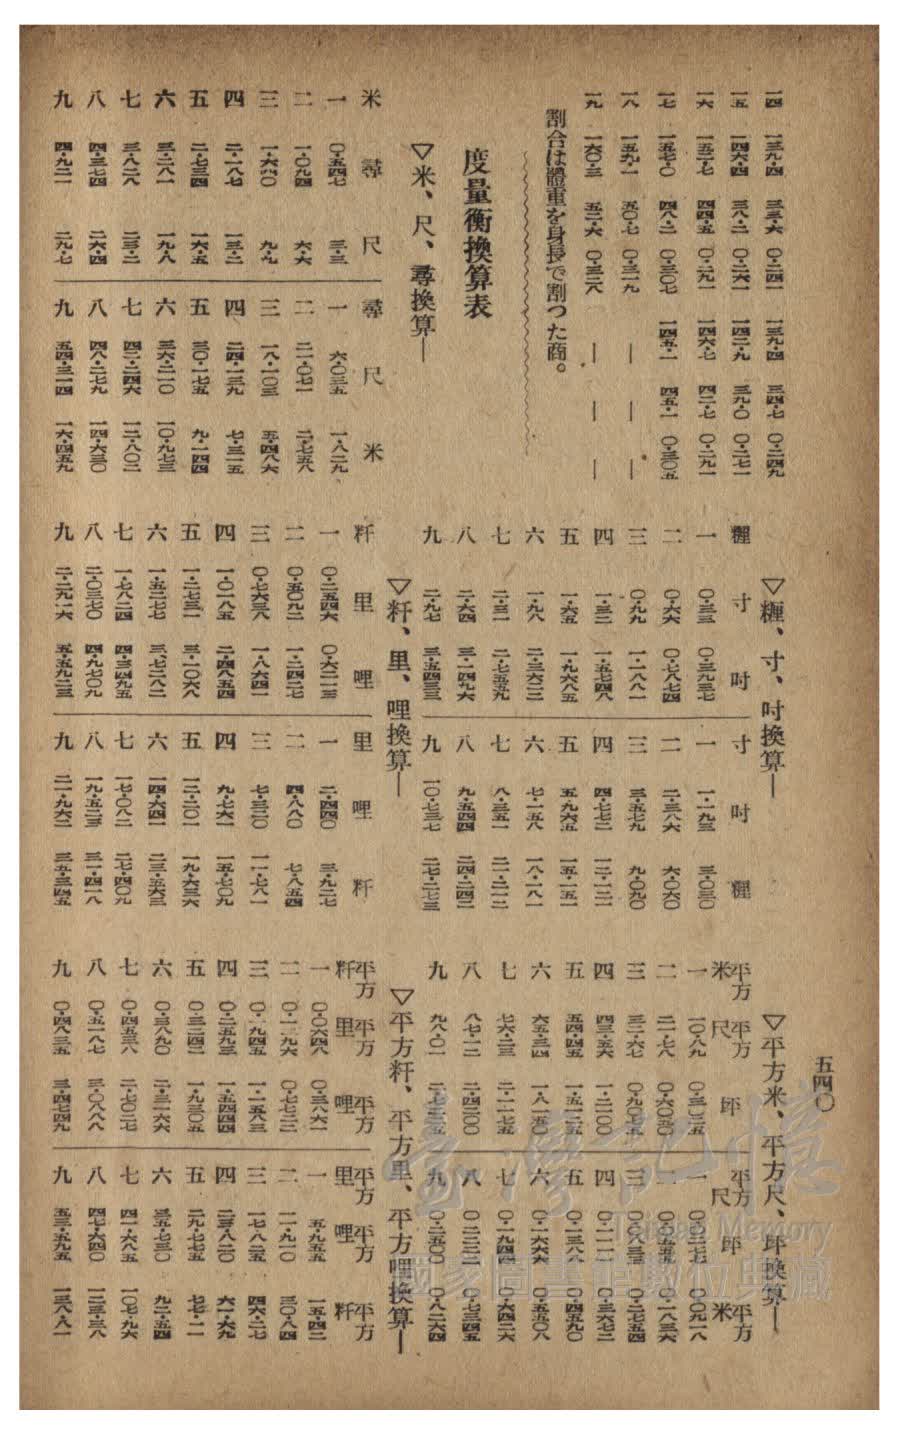 一四 一三九・四 三三・六 〇・二四一 一三九・四 三四・七 〇・二四九
一五 一四六・四 三八・二 〇・二六一 一四二・九 三九・〇 〇・二七一
一六 一五二・七 四四・五 〇・二九一 一四六・七 四二・七 〇・二九一
一七 一五七・〇 四八・二 〇・三〇七 一四五・一 四五・一 〇・三〇五
一八 一五九・一 五〇・七 〇・三一九 — — —
一九 一六〇・三 五二・六 〇・三二八 — — —
割合は體重を身長で割つた商。
度量衡換算表
▽米、尺、尋換算—
米 尋 尺 尋 尺 米
一 〇・五四七 三・三 一 六・〇三五 一・八二九
二 一・〇九四 六・六 二
三 九・九 三 一八・一〇三 五・四八六
四 二・一八七 一三・二 四 二四・一三九 七・三一五
五 二・七三四 一六・五 五 三〇・一七五 九・一四四
六 三・二八一 一九・八 六 三六・二一〇 一〇・九七三
七 三・八二八 二三・二 七 四二・二四六 一二・八〇二
八 四・三七四 二六・四 八 四八・二七九 一四・六三〇
九 四・九二一 二九・七 九 五四・三一四 一六・四五九
▽糎、寸、吋換算—
糎 寸 吋 寸 吋 糎
一 〇・三三 〇・三九三七 一 一・一九三 三・〇三〇
二 〇・六六 〇・七八七四 二 二・三八六 六・〇六〇
三 〇・九九 一・一八八一 三 三・五七九 九・〇九〇
四 一・三二 一・五七四八 四 四・七七二 一二・一二一
五 一・六五 一・九六八五 五 五・九六五 一五・一五一
六 一・九八 二・三六二二 六 七・一五八 一八・一八一
七 二・三一 二・七五五九 七 八・三五一 二一・二一二
八 二・六四 三・一四九六 八 九・五四四 二四・二四二
九 二・九七 三・五四三三 九 一〇・七三七 二七・二七三
▽粁、里、哩換算—
粁 里 哩 里 哩 粁
一 〇・二五四六 〇・六二一三 一 二・四四〇 三・九二七
二 〇・五〇九二 一・二四二七 二 四・八八〇 七・八五四
三 〇・七六三八 一・八六四一 三 七・三二〇 一一・七八一
四 一・〇一八五 二・四八五四 四 九・七六一 一五・七〇九
五 一・二七三一 三・一〇六八 五 一二・二〇一 一九・六三六
六 一・五二七七 三・七二八二 六 一四・六四一 二三・五六三
七 一・七八二四 四・三四九五 七 一七・〇八二 二七・四〇九
八 二・〇三七〇 四・九七〇九 八 一九・五二三 三一・四一八
九 二・二九一六 五・五九二三 九 二一・九六二 三五・三四五
五四〇
▽平方米、平方尺、坪換算—
平方米 平方尺 坪 平方尺 坪 平方米
一 一〇・八九 〇・三〇二五 一 〇・〇二七七 〇・〇九一八
二 二一・七八 〇・六〇五〇 二 〇・〇五五五 〇・一八三六
三 三二・六七 〇・九〇七五 三 〇・〇八三三 〇・二七五四
四 四三・五六 一・二一〇〇 四 〇・一一一一 〇・三六七二
五 五四・四五 一・五一二五 五 〇・一三八八 〇・四五九〇
六 六五・三四 一・八一五〇 六 〇・一六六六 〇・五五〇八
七 七六・二三 二・一一七五 七 〇・一九四四 〇・六四二六
八 八七・一二 二・四二〇〇 八 〇・二二二二 〇・七三四五
九 九八・〇一 二・七二二五 九 〇・二五〇〇 〇・八二六四
▽平方粁、平方里、平方哩換算—
平方粁 平方里 平方哩 平方里 平方哩 平方粁
一 〇・〇六四八 〇・三八六一 一 五・九五五 一五・四二
二 〇・一二九六 〇・七七二二 二 一一・九一〇 三〇・八四
三 〇・一九四五 一・一五八三 三 一七・八六五 四六・二七
四 〇・二五九三 一・五四四四 四 二三・八二〇 六一・六九
五 〇・三二四二 一・九三〇五 五 二九・七七五 七七・一一
六 〇・三八九〇 二・三一六六 六 三五・七三〇 九二・五四
七 〇・四五三八 二・七〇二七 七 四一・六八五 一〇七・九六
八 〇・五一八七 三・〇八八八 八 四七・六四〇 一二三・三八
九 〇・五八三五 三・四七四九 九 五三・五九五 一三八・八一
臺灣記憶
Taiwan Memory
國家圖書館數位典藏